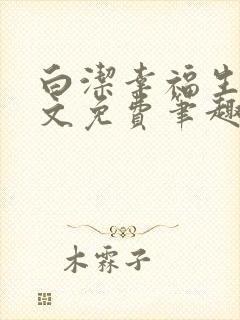 白潔幸福生
文免費筆趣
木霖子